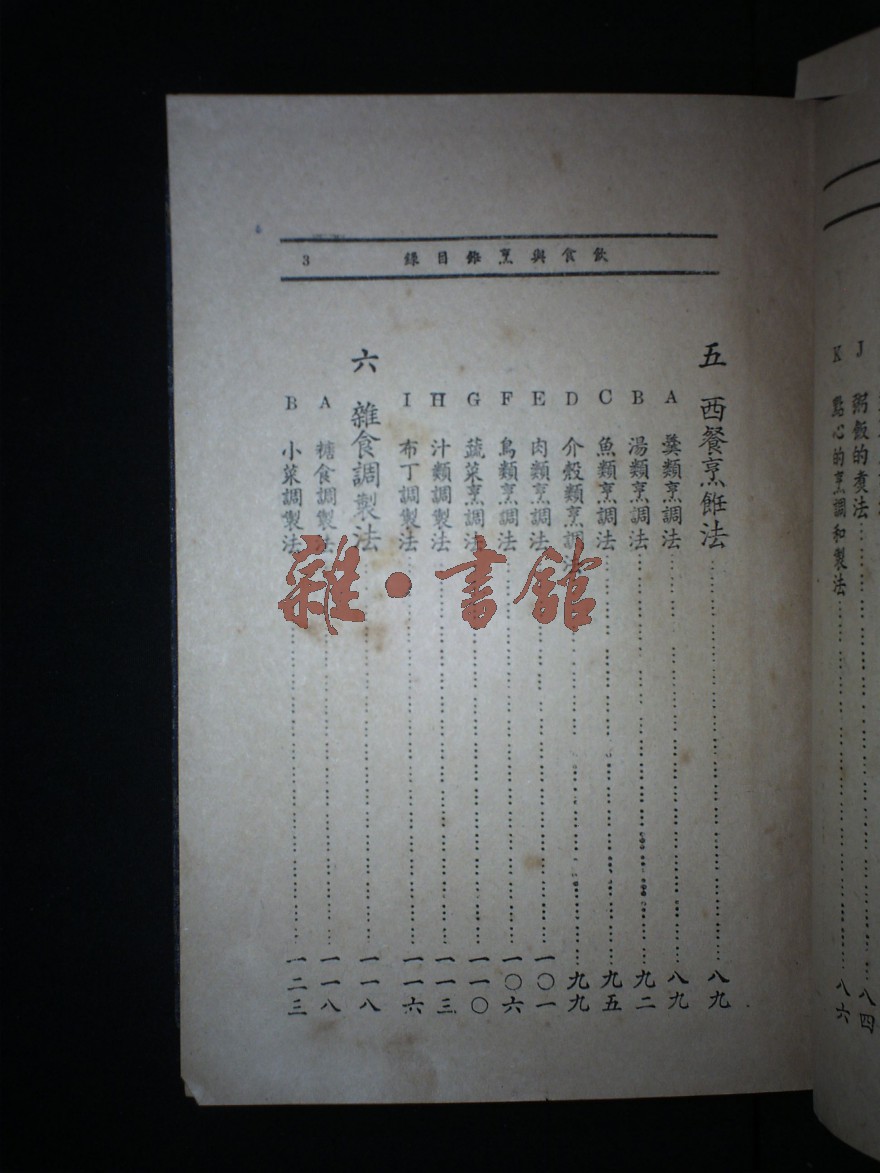 J 粥飯的煮法……八四
K 點心的烹調和製法……八六
飲食與烹飪目錄 3
五 西餐烹飪法……八九
A 羹類烹調法……八九
B 湯類烹調法……九二
C 魚類烹調法……九五
D 介殼類烹調法……九九
E 肉類烹調法……一〇一
F 鳥類烹調法……一〇六
G 蔬菜烹調法……一一〇
H 汁類調製法……一一三
I 布丁調製法……一一六
六 雜食調製法……一一八
A 糖食調製法……一一八
B 小菜調製法……一二三
雜·書館